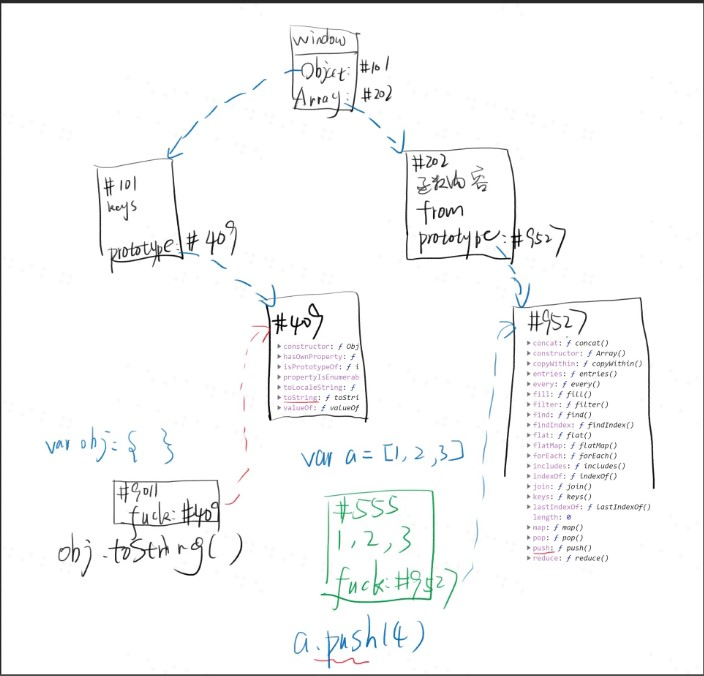 window
Object: #101
Array: #202
#101
keys
prototype: #409
#202
函数内容
from
prototype: #9527
#409
constructor: ƒ Obj
hasOwnProperty: ƒ
isPrototypeOf: ƒ i
propertyIsEnumerab
toLocaleString: ƒ
toString: ƒ toStri
valueOf: ƒ valueOf
#9527
concat: ƒ concat()
constructor: ƒ Array()
copyWithin: ƒ copyWithin()
entries: ƒ entries()
every: ƒ every()
fill: ƒ fill()
filter: ƒ filter()
find: ƒ find()
findIndex: ƒ findIndex()
flat: ƒ flat()
flatMap: ƒ flatMap()
forEach: ƒ forEach()
includes: ƒ includes()
indexOf: ƒ indexOf()
join: ƒ join()
keys: ƒ keys()
lastIndexOf: ƒ lastIndexOf()
length: 0
map: ƒ map()
pop: ƒ pop()
push: ƒ push()
reduce: ƒ reduce()
var obj = { }
#9011
fuck: #409
obj.toString()
var a = [1, 2, 3]
#555
1, 2, 3
fuck: #9527
a.push(4)